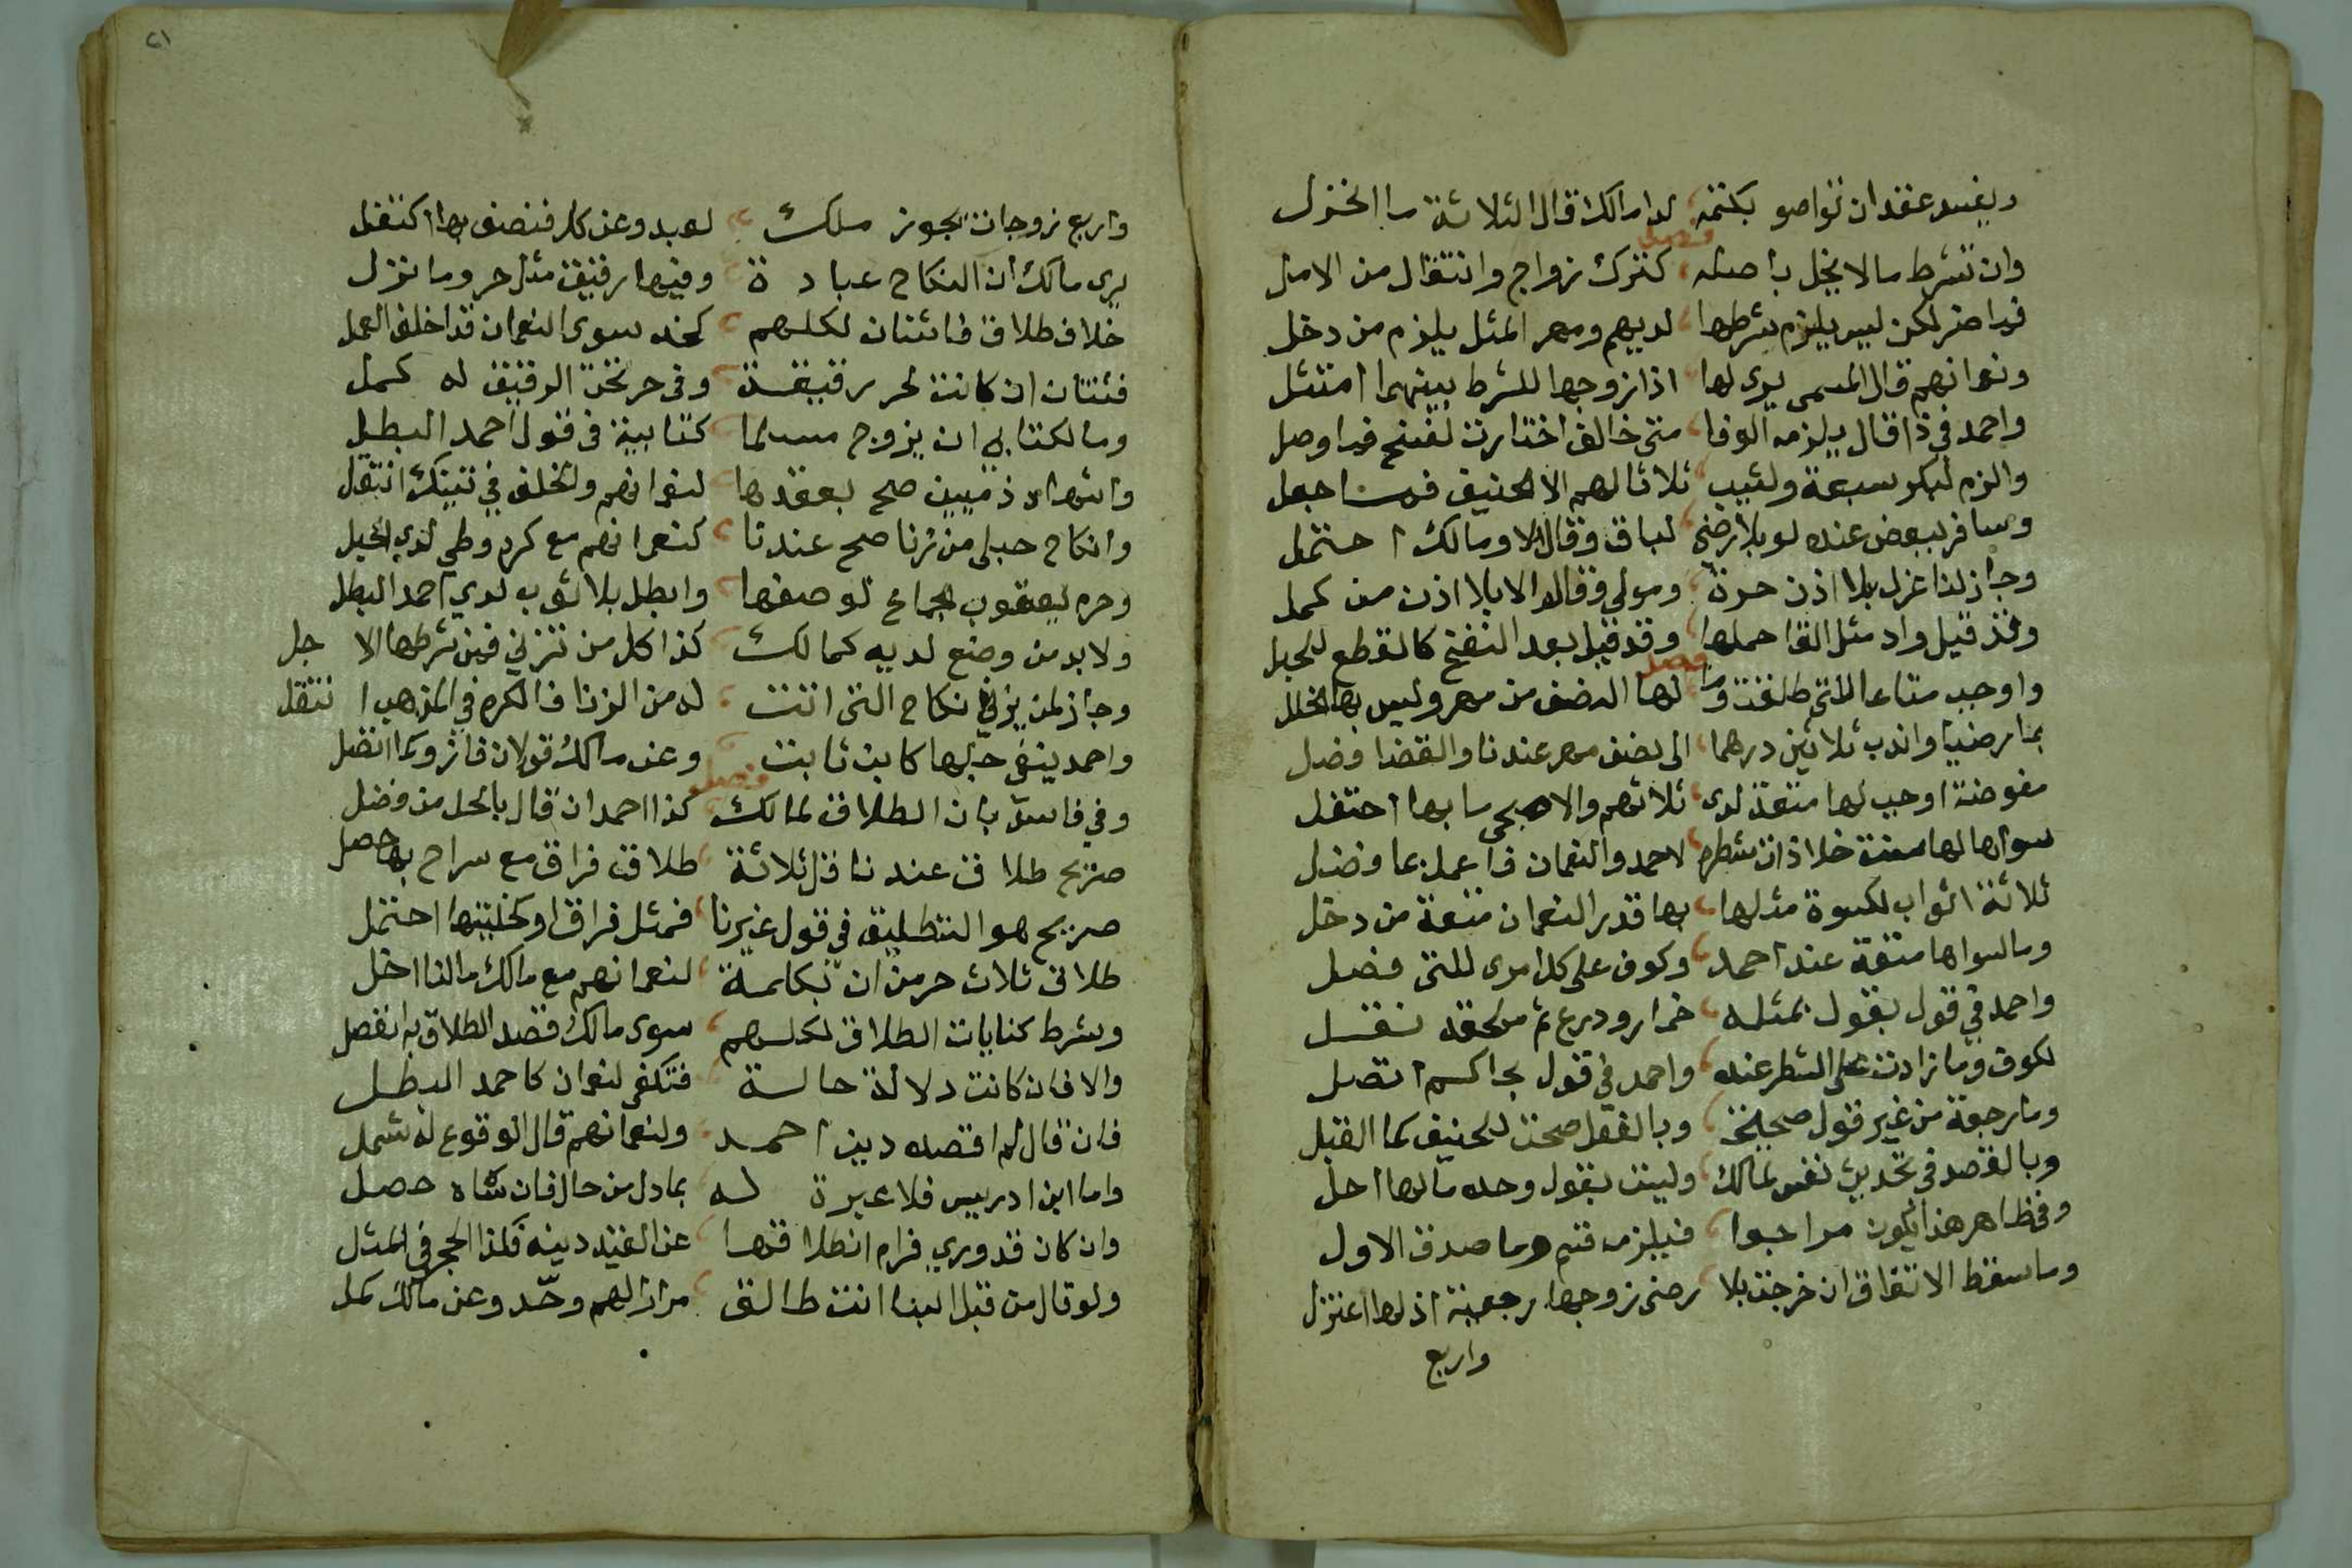 ويفسد عقد ان تواصو بكتمه لدا مالك قال الثلاثة ما انخزل
فصل
وان تشرط مالا يخل باصله كترك زواج وانتقال من الامل
فما ضر لكن ليس يلزم شرطها لديهم ومهر المثل يلزم من دخل
ونعمانهم قال المسمى يرى لها اذا زوجها للشرط بينهما امتثل
واحمد في ذا قال يلزمه الوفا متى خالف اختارت لفسخ فما وصل
والزم لبكر سبعة ولثيب ثلاثا لهم الا الحنيف فما جعل
وسافر ببعض عنده لو بلا رضى لباق وقالا لا ومالك احتمل
وجاز لنا عزل بلا اذن حرة ومولى وقالوا لا بلا اذن من كمل
وقد قيل واد مثل القا حملها وقد قيل بعد النفخ كالقطع للحبل
فصل
واوجب متاعا للتي طلقت وما لها النصف من مهر وليس بها الخلل
بما رضيا واندب ثلاثين درهما الى نصف مهر عندنا والقضا فضل
مفوضة اوجب لها متعة لدى ثلاثهم والاصبحي ما بها احتفل
سواها لها سنة خلا ذات شطره لاحمد والنعمان فاعمل بما فضل
ثلاثة اثواب لكسوة مثلها بها قدر النعمان متعة من دخل
وما لسواها متعة عند احمد وكوف على كل امرى للتى فضل
واحمد في قول يقول بمثله خمار ودرع ثم ملحفه نقل
لكوف وما زادت على الشطر عنده واحمد في قول بحاكم اتصل
وما رجعة من غير قول صحيحة وبالفعل صحت للحنيف كما القبل
وبالقصد في تحديث نفس لمالك وليث بقول وحده مالها احل
وفي ظاهر هذا يكون مراجعا فيلزمه قسم وما صدق الاول
وما سقط الانفاق ان خرجت بلا رضى زوجها رجعية اذ لها اعتزل
واربع
٢١
واربع زوجات تجوز ملك لعبد وعن كل فنصف بها اكتفل
يرى مالك ان النكاح عبادة وفيها رقيق مثل حر وما نزل
خلاف طلاق فاثنتان لكلهم كحد سوى النعمان قد اخلف العمل
فثنتان ان كانت لحر رقيقة وفى حر تحت الرقيق له كمل
وما لكتابى ان يزوج مسلما كتابية في قول احمد البطل
واشهاد ذميين صح بعقدها لنعمانهم والخلف في تينك انتقل
وانكاح حبلى من زنا صح عندنا كنعمانهم مع كره وطي لدي الحبل
وحرم ليعقوب الجماع لوصفها وابطل بلا ثوب لدي احمد البطل
ولا بد من وضع لديه كمالك كذا كل من تزني فمن شرطها الاجل
وجاز لمن يزني نكاح التى اتت له من الزنا فالكره في المذهب انتقل
واحمد ينفى حبلها كابن ثابت وعن مالك قولان فازوكما انفضل
فصل
وفي فاسد بان الطلاق لمالك كذا احمد ان قال بالحل من فضل
صريح طلاق عندنا قل ثلاثة طلاق فراق مع سراح بها حصل
صريح هو التطليق في قول غيرنا فمثل فراق او كخليتها احتمل
طلاق ثلاث حرمن ان بكلمة لنعمانهم مع مالك مالنا اخل
وشرط كنايات الطلاق لكلهم سوى مالك قصد الطلاق به انفصل
والا فان كانت دلالة حالة فتكفى لنعمان كاحمد البطل
فان قال لم اقصده دين احمد ولنعمانهم قال الوقوع له شمل
واما ابن ادريس فلا عبرة له بما دل من حال فان شاه حصل
وان كان قد وري فرام انطلاقها عن القيد دينه فلذا الحجر في المثل
ولو قال من قبل البنا انت طالق مرارا لهم وحد وعن مالك كمل